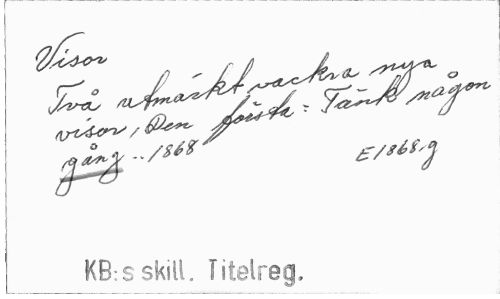 Visor
Två utmärkt vackra nya
visor, Den första: Tänk någon
gång .. 1868
E1868.g
KB:s skill. Titelreg.